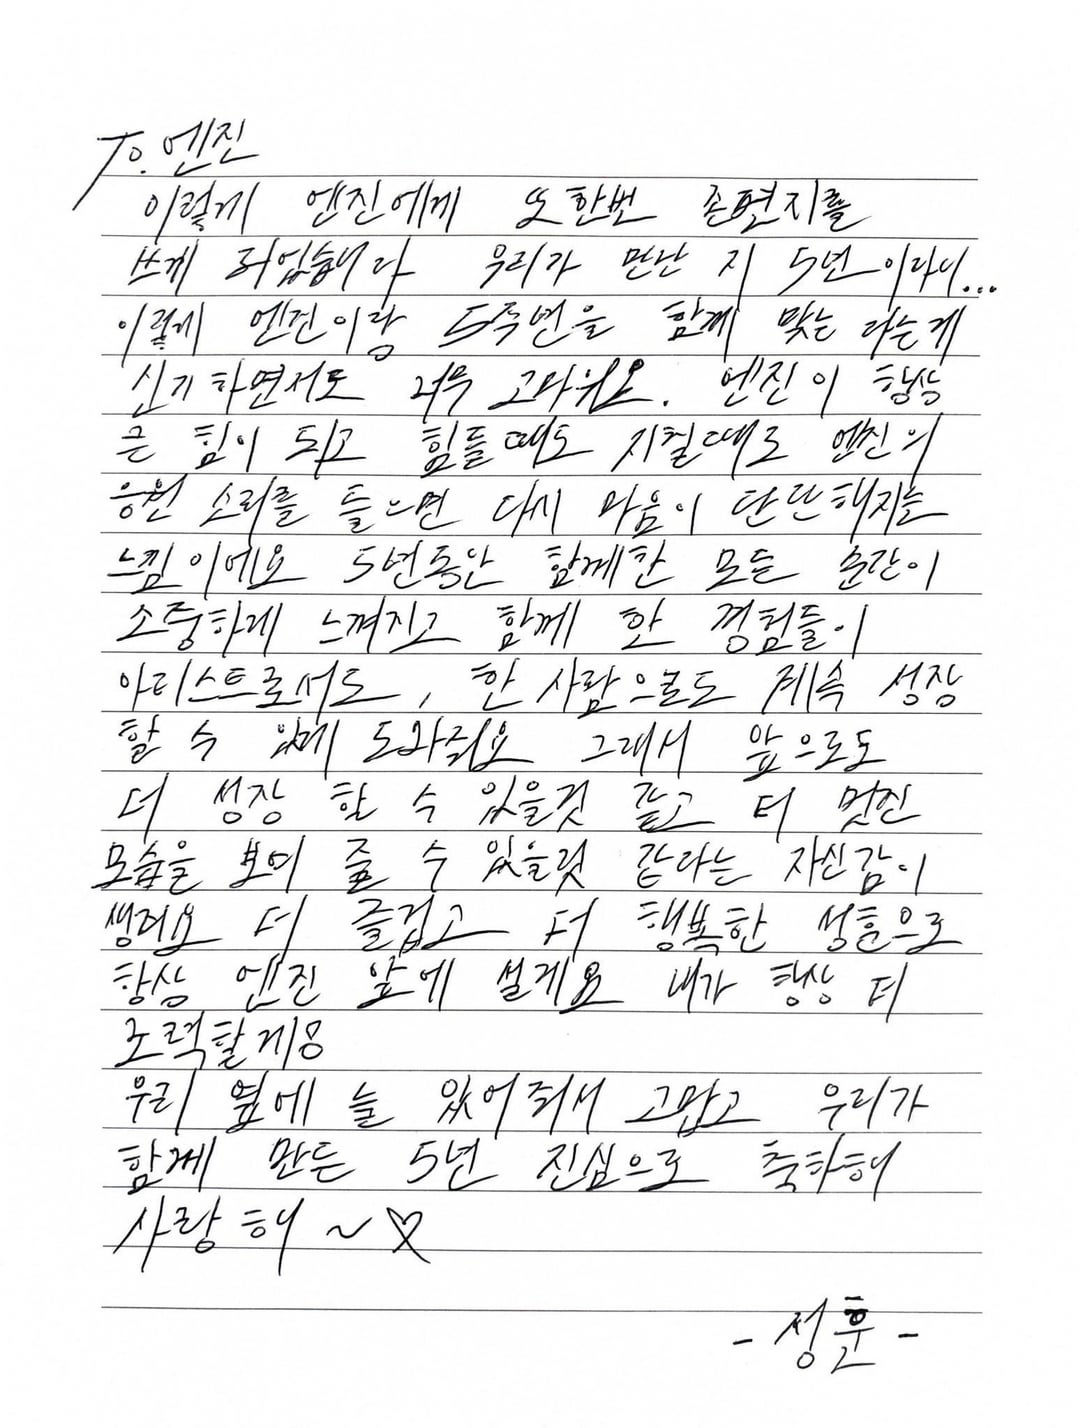 To. 엔진
이렇게 엔진에게 또한번 손편지를
쓰게 되었습니다 우리가 만난 지 5년 이라니...
이렇게 엔진이랑 5주년을 함께 맞는 다는게
신기하면서도 너무 고마워요. 엔진이 항상
큰 힘이 되고 힘들때도 지칠때도 엔진의
응원 소리를 들으면 다시 마음이 단단해지는
느낌이에요 5년동안 함께한 모든 순간이
소중하게 느껴지고 함께 한 경험들이
아티스트로서도, 한 사람으로도 계속 성장
할 수 있게 도와줘요 그래서 앞으로도
더 성장 할 수 있을것 같고 더 멋진
모습을 보여 줄 수 있을것 같다는 자신감이
생겨요 더 즐겁고 더 행복한 성훈으로
항상 엔진 앞에 설게요 내가 항상 더
노력할게용
우리 옆에 늘 있어줘서 고맙고 우리가
함께 만든 5년 진심으로 축하해
사랑해 ~♡
- 성훈 -